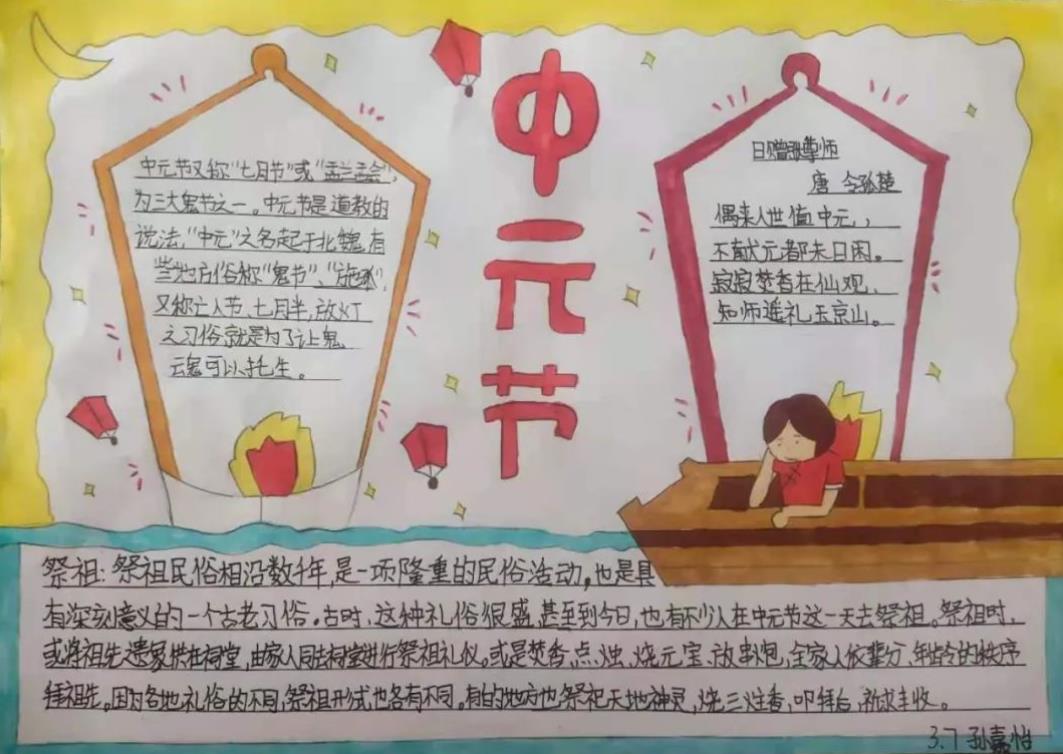 中元节
中元节又称“七月节”或“盂兰盆会”,
为三大鬼节之一。中元节是道教的
说法,“中元”之名起于北魏,有
些地方俗称“鬼节”、“施孤”,
又称亡人节、七月半,放灯
之习俗就是为了让鬼
魂可以托生。
中元日赠张尊师
唐 令狐楚
偶来人世值中元,,
不献元都未日闲。
寂寂焚香在仙观、
知师遥礼玉京山。
祭祖:祭祖民俗相沿数千年,是一项隆重的民俗活动,也是具
有深刻意义的一个古老习俗。古时,这种礼俗很盛,甚至到今日,也有不少人在中元节这一天去祭祖。祭祖时,
或将祖先遗象供在祠堂,由家人同去祠堂进行祭祖礼仪。或是焚香、点烛、烧元宝、放串炮,全家人依辈分、年龄的秩序
拜祖先。因为各地礼俗的不同,祭祖形式也各有不同。有的地方也祭祀天地神灵,烧三炷香,叩拜后,祈求丰收。
3.7 孙嘉怡